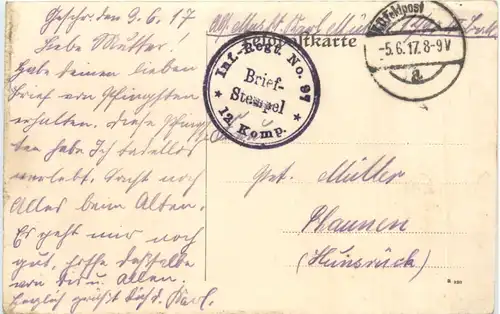 Geschr. den 3.6.17
Liebe Mutter!
Habe deinen lieben
Brief von Pfingsten
erhalten. Diese Pfings-
ten habe Ich tadellos
verlebt. Sonst noch
Alles beim Alten.
Es geht mir noch
gut, hoffe dasselbe
von dir u. Allen.
Herzlich grüßt dich d. Karl.
Abs. Musk. Karl Müller
Feldpostkarte
Inf.-Regt. No. 97
Brief-
Stempel
12 Komp.
K.D. Feldpost
-5.6.17. 8-9V
a
Pet. Müller
Hausen
(Hunsrück)